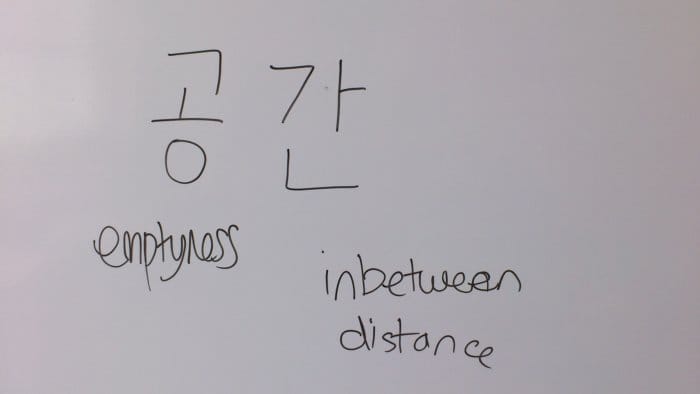 공간
emptyness
inbetween
distance